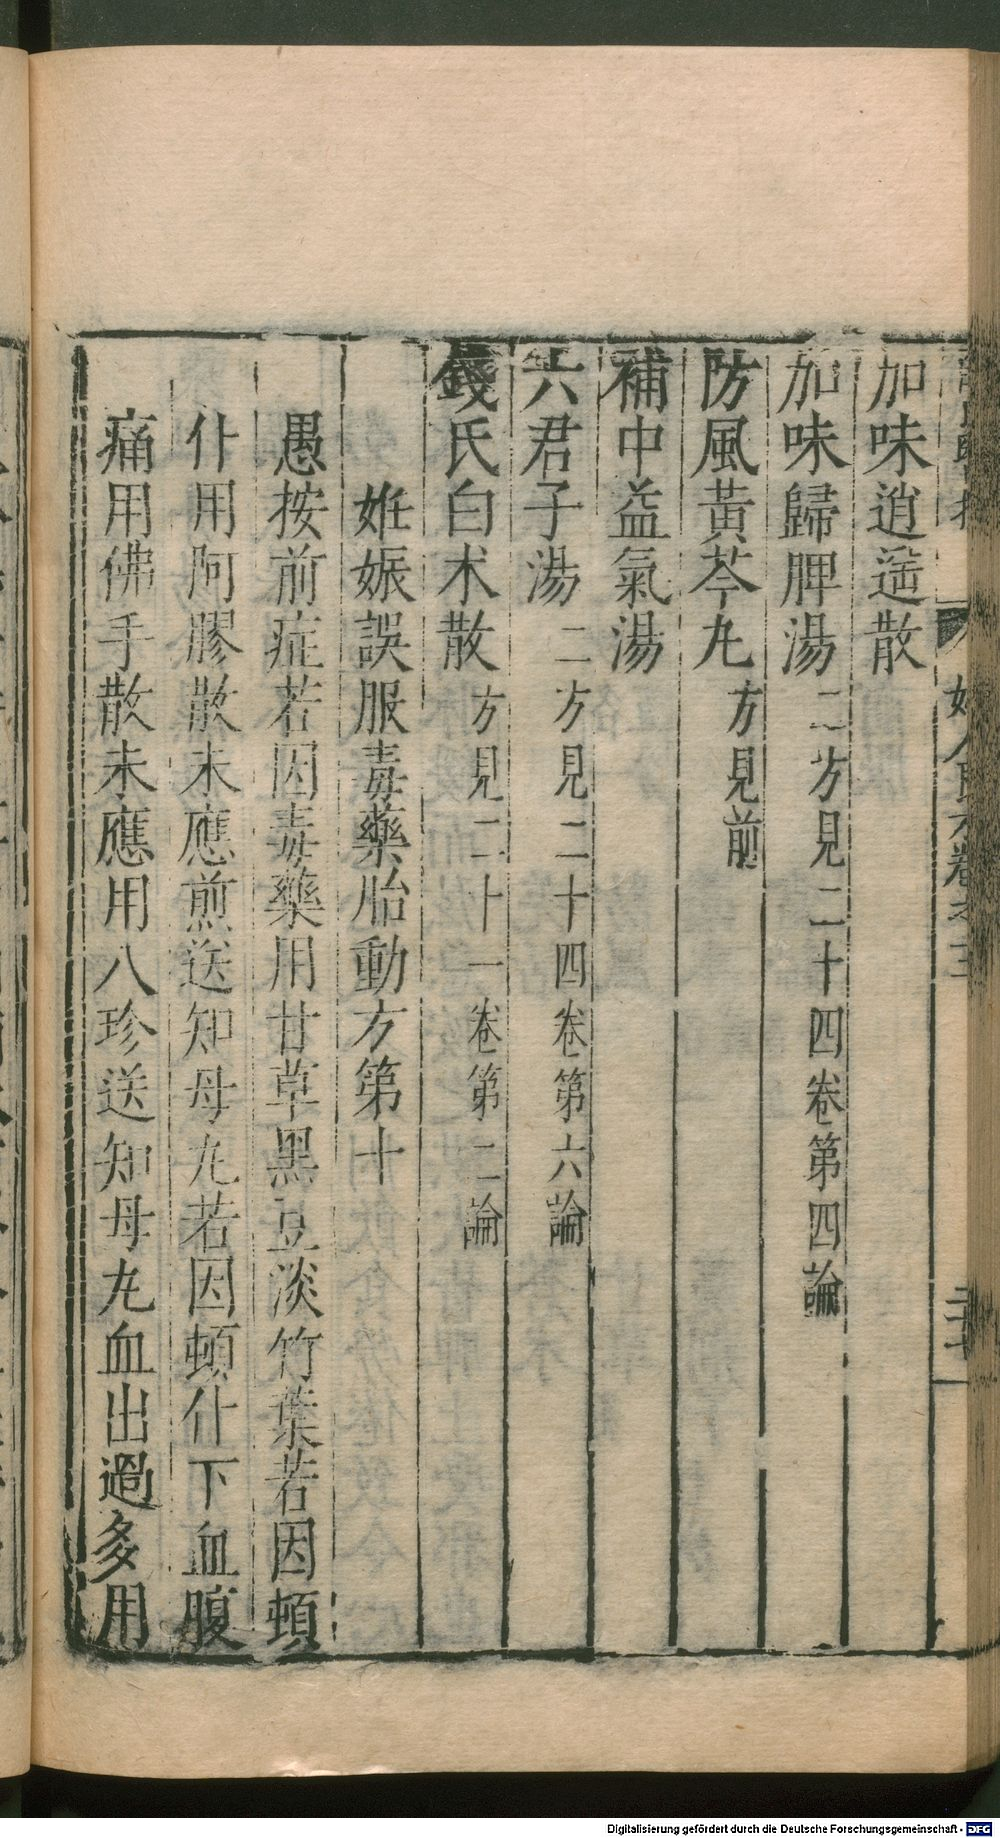 加味逍遥散
加味歸脾湯二方見二十四卷第四論
防風黃芩丸方見前
補中益氣湯
六君子湯二方見二十四卷第六論
錢氏白术散方見二十一卷第二論
妊娠誤服毒藥胎動方第十
愚按前症若因毒藥用甘草黑豆淡竹葉若因頓
仆用阿膠散未應煎送知母丸若因頓仆下血腹
痛用佛手散未應用八珍送知母丸血出過多用
Digitalisierung gefördert durch die Deutsche Forschungsgemeinschaft - DFG